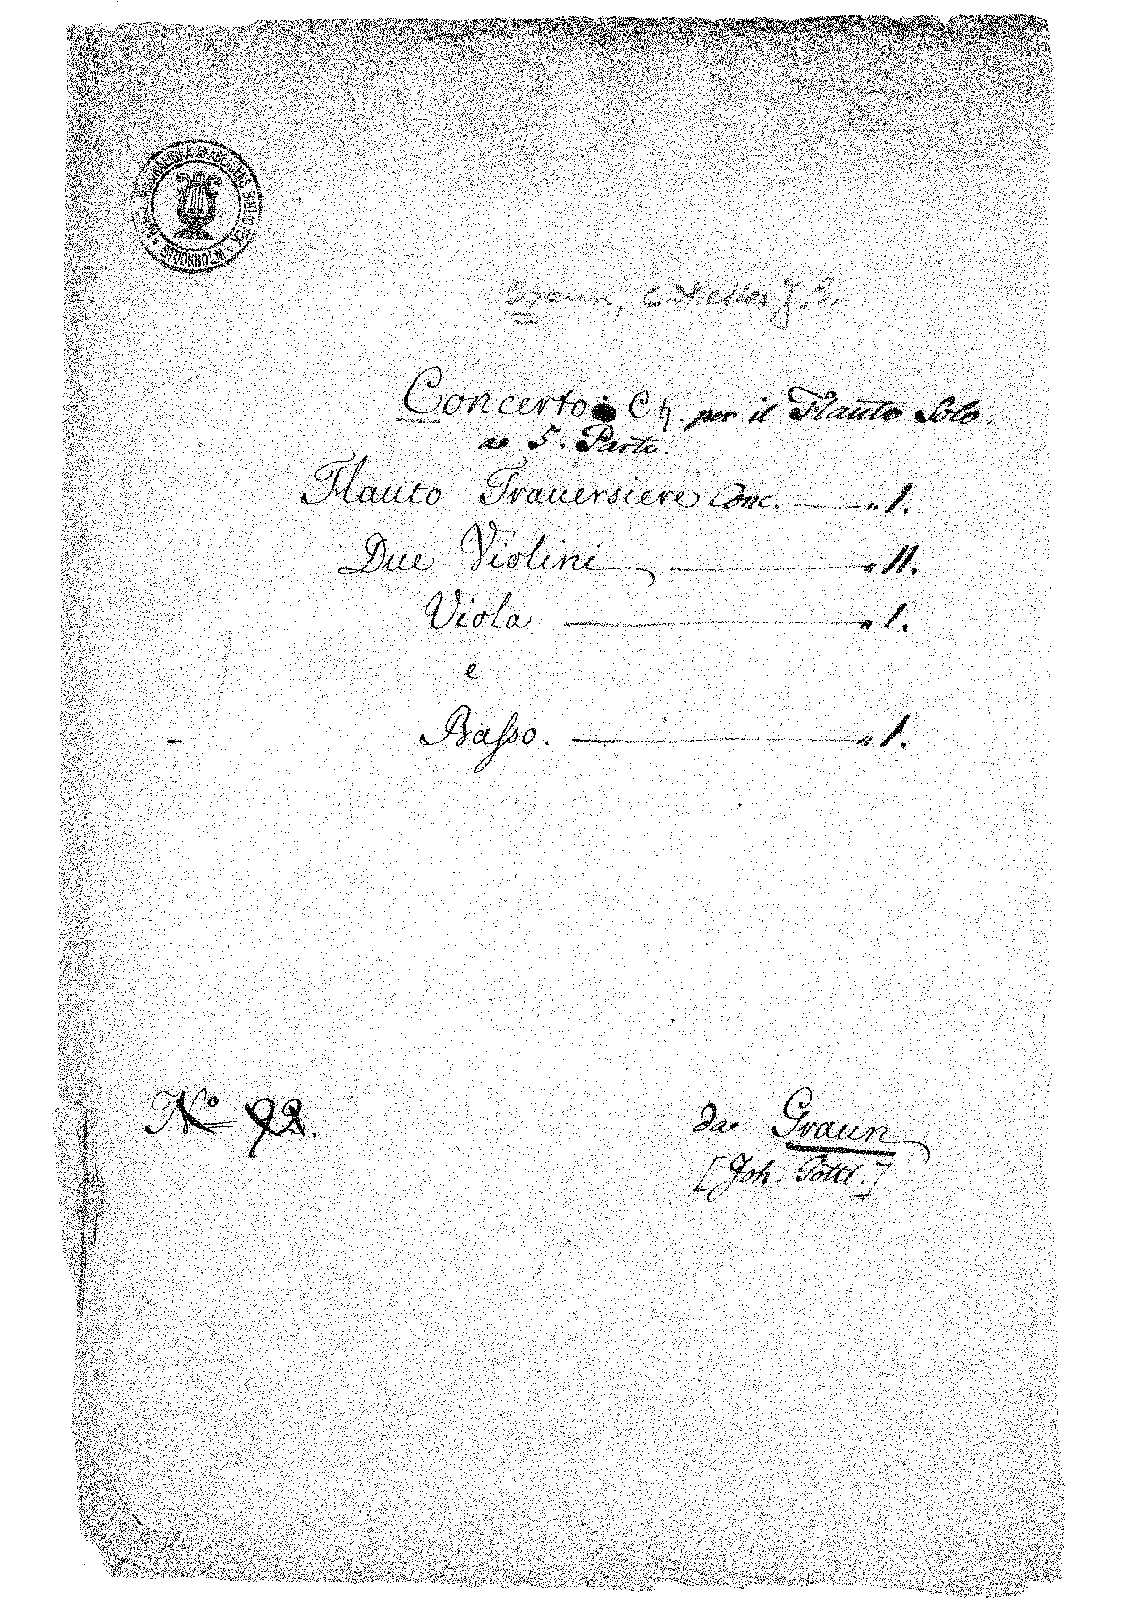 Graun, C. H. oder J. G.
Concerto C ♮. per il Flauto Solo.
a 5. Parte.
Flauto Traversiere Conc. — „ 1.
Due Violini — „ 11.
Viola — „ 1.
e
Basso. — „ 1.
No 92.
da Graun
[Joh. Gottl.]